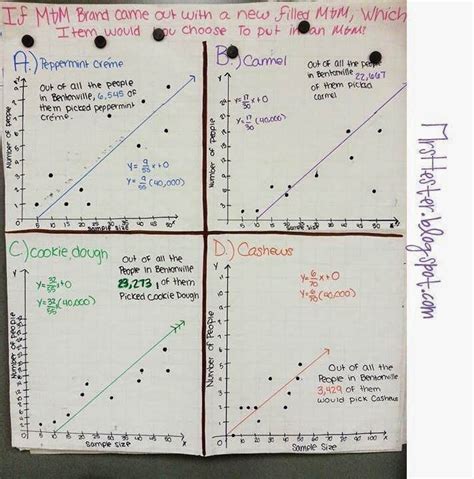 If M&M Brand came out with a new filled M&M, Which
Item would you choose to put in an M&M?
A.) Peppermint Creme
Out of all the people
in Bentonville, 6,545 of
them picked peppermint
creme.
y=9/55 x+0
y=9/55 (40,000)
Number of people
Sample Size
B.) Carmel
Out of all the people
in Bentonville 22,667
of them picked
carmel
y=17/30 x+0
y=17/30 (40,000)
Number of People
Sample Size
C.) Cookie dough
Out of all the
People in Bentonville
23,273, of them
Picked Cookie Dough
y=32/55 x+0
y=32/55 (40,000)
Number of People
Sample Size
D.) Cashews
y=6/70 x+0
y=6/70 (40,000)
Out of all the
People in Bentonville
3,429 of them
would pick Cashews
Number of People
Sample Size
MrsHester.blogspot.com